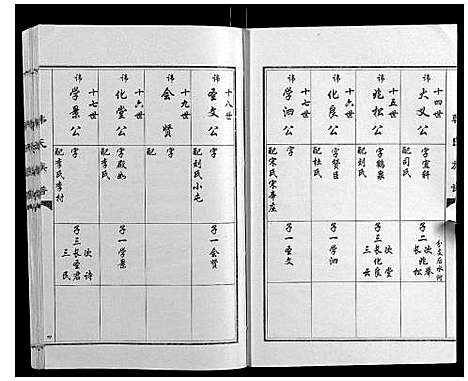 十四世
讳大义公
字宜轩
配司氏
子二长兆松
次兆举
分支后水河
十五世
讳兆松公
字鹤泉
配刘氏
子三长化良
次堂
三云
十六世
讳化良公
字贤臣
配杜氏
子一学泗
十七世
讳学泗公
字
配宋氏宋辛庄
子一圣文
十八世
讳圣文公
字
配刘氏小屯
子一会贤
十九世
讳会贤
字
配
十六世
讳化堂公
字殿如
配李氏
子一学景
十七世
讳学景公
字
配李氏李村
子三长圣君
次诗
三民